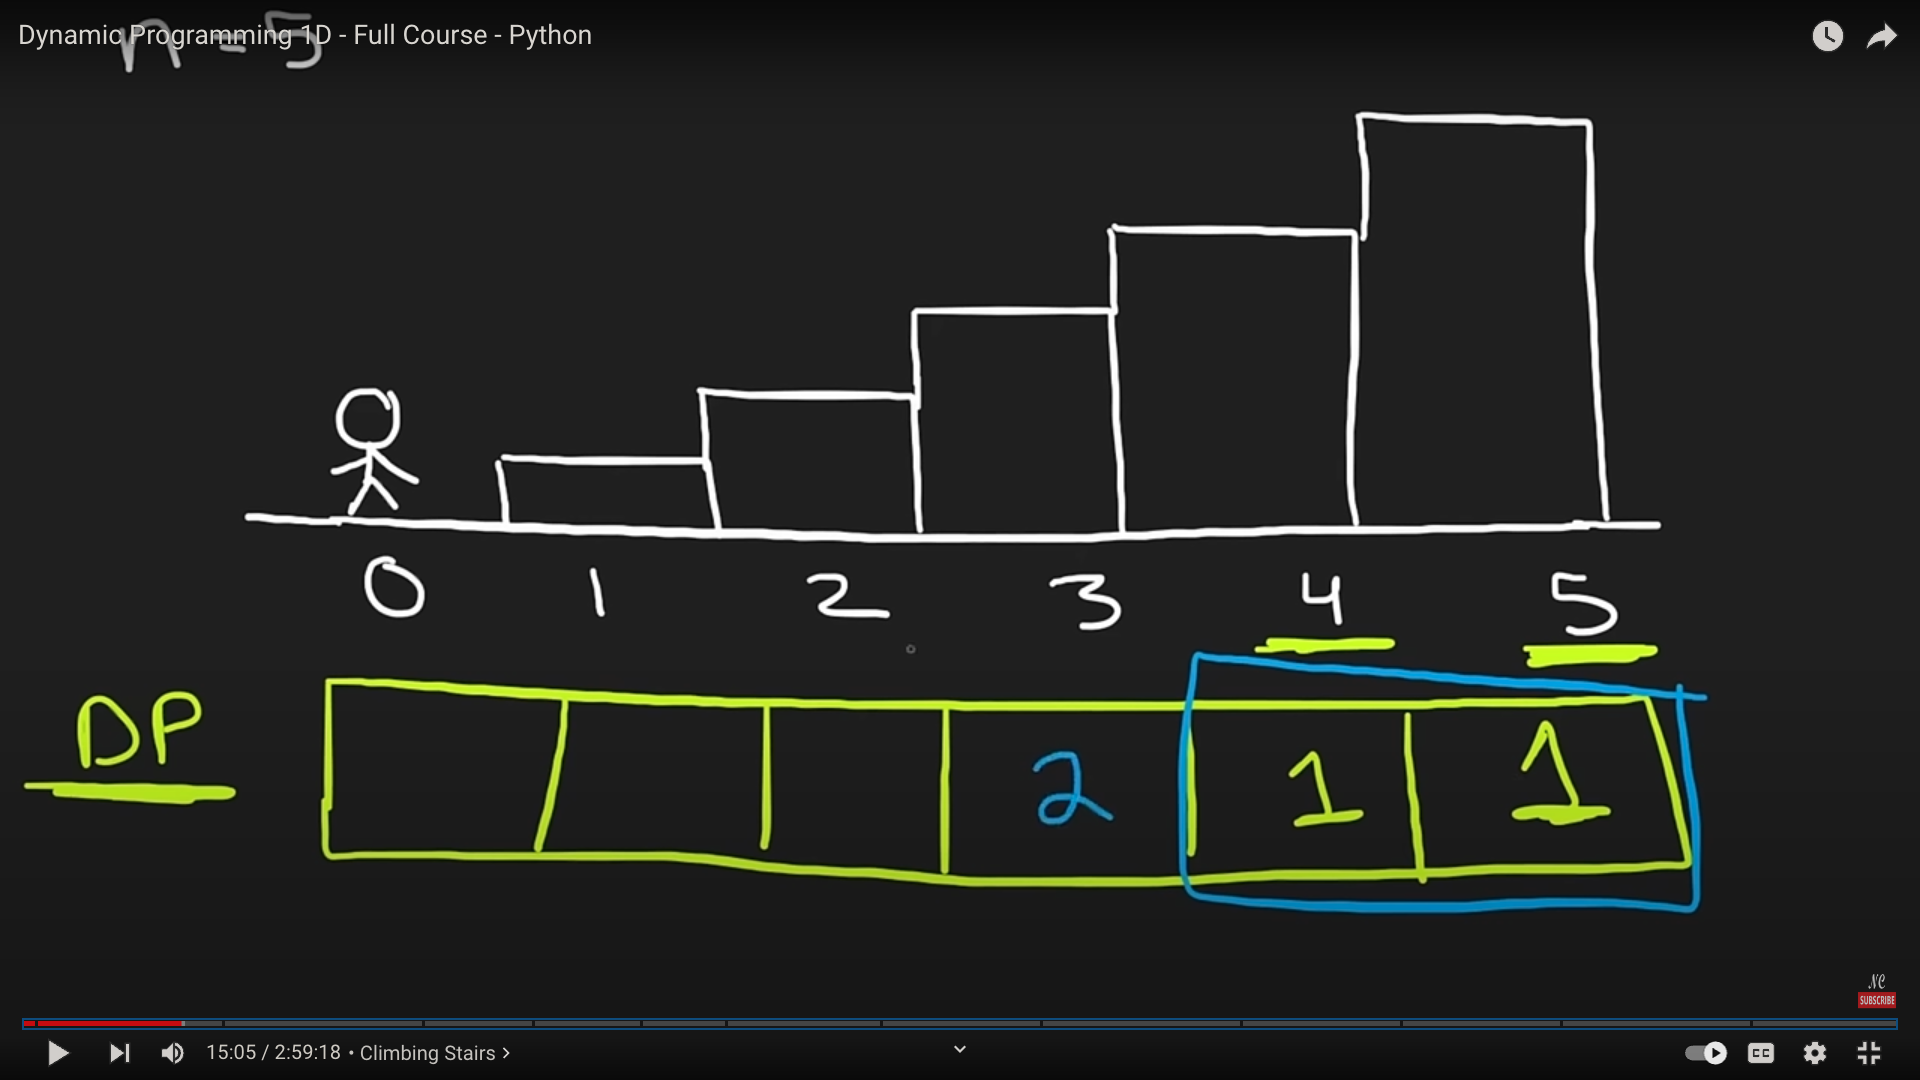 Dynamic Programming 1D - Full Course - Python
n = 5
0 1 2 3 4 5
DP 2 1 1
NC
SUBSCRIBE
15:05 / 2:59:18 • Climbing Stairs >
CC